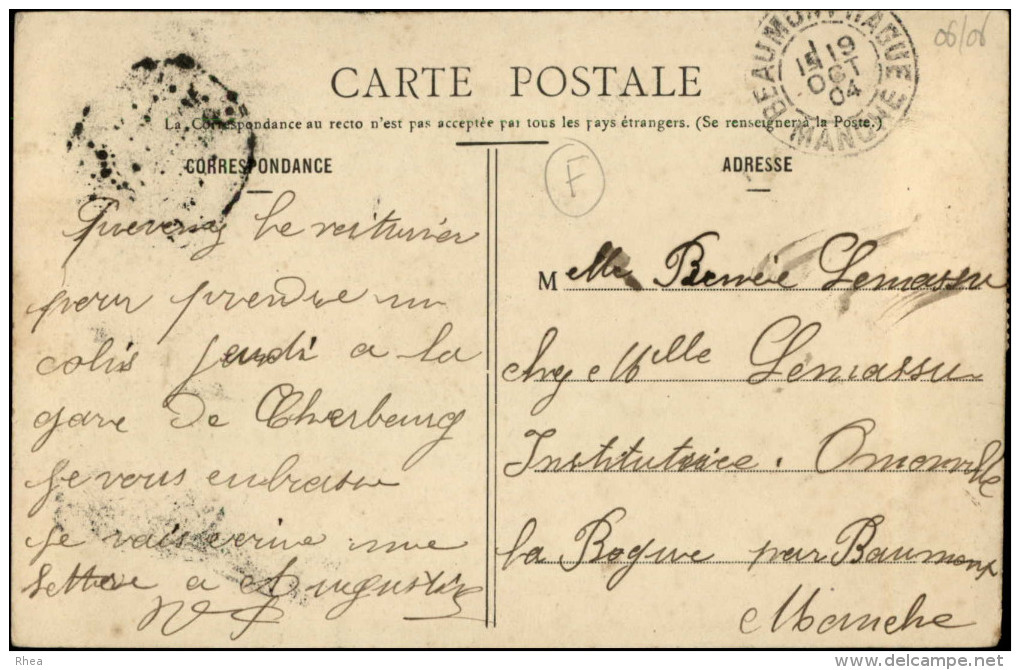 06/06
BEAUMONT HAGUE
19
OCT
04
MANCHE
CARTE POSTALE
La Correspondance au recto n'est pas acceptée par tous les pays étrangers. (Se renseigner à la Poste.)
CORRESPONDANCE
Prevenez le voiturier
pour prendre un
colis jeudi a la
gare de Cherbourg
je vous embrasse
je vais ecrire une
lettre a Augustin
F
ADRESSE
Melle Lemassu
chez Melle Lemassu
Institutrice. Omonville
la Rogue par Baumont
Manche
Rhea
delcampe.net